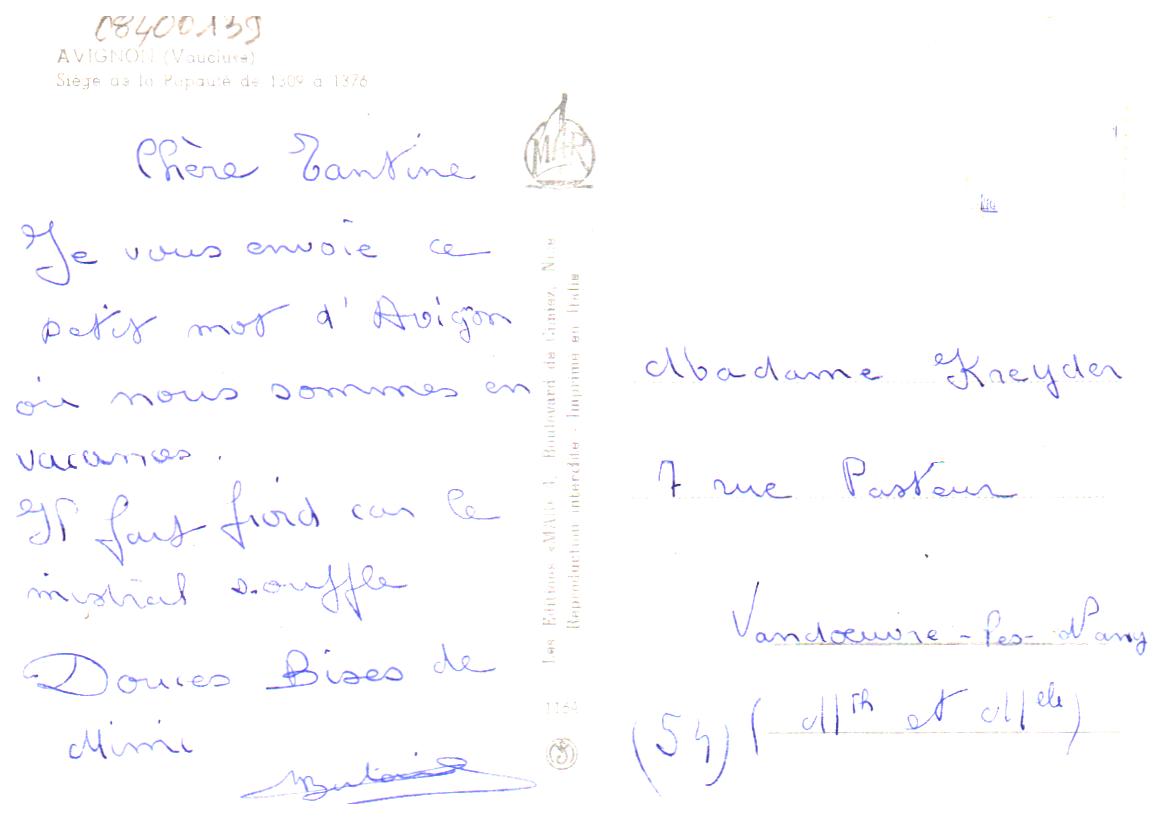 08400139
AVIGNON (Vaucluse)
Siège de la Papauté de 1309 à 1376
MAR
Chère Tantine
Je vous envoie ce
petit mot d'Avignon
où nous sommes en
vacances.
Il fait froid car le
mistral souffle
Douces Bises de
Mimi
Les Editions «MAR» Boulevard de Nice
Reproduction interdite - Imprimé en Italie
1164
Madame Kreyder
7 rue Pasteur
Vandoeuvre-les-Nancy
(54) (Mth et Mele)